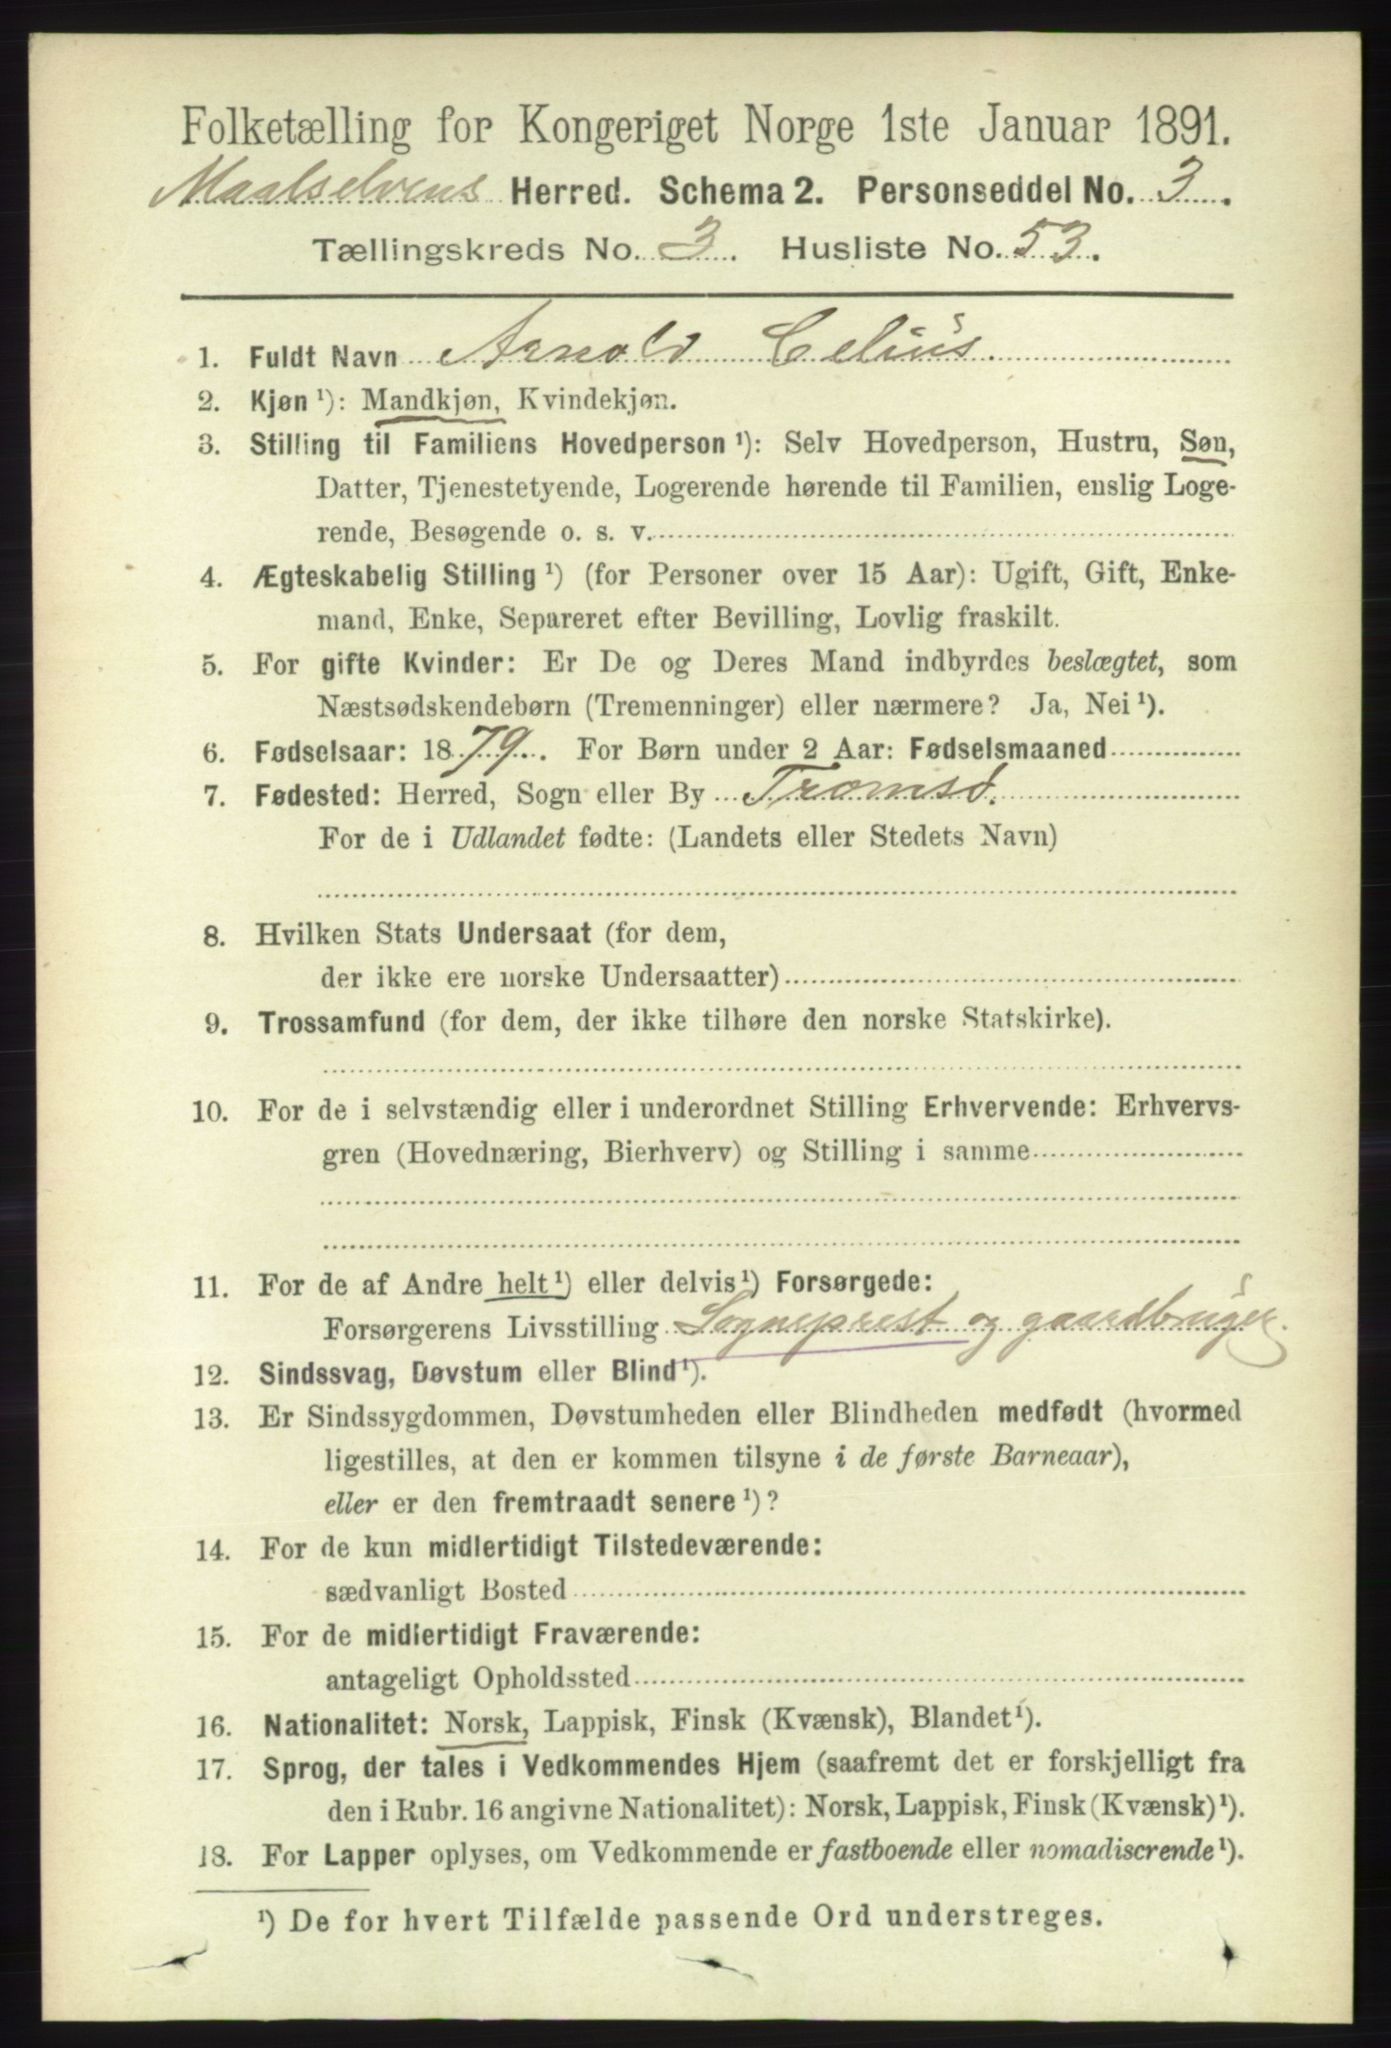 Folketælling for Kongeriget Norge 1ste Januar 1891.
Maalselvens Herred. Schema 2. Personseddel No. 3.
Tællingskreds No. 3. Husliste No. 53.
1. Fuldt Navn Arnold Celius.
2. Kjøn ¹): Mandkjøn, Kvindekjøn.
3. Stilling til Familiens Hovedperson ¹): Selv Hovedperson, Hustru, Søn,
Datter, Tjenestetyende, Logerende hørende til Familien, enslig Loge-
rende, Besøgende o. s. v.
4. Ægteskabelig Stilling ¹) (for Personer over 15 Aar): Ugift, Gift, Enke-
mand, Enke, Separeret efter Bevilling, Lovlig fraskilt.
5. For gifte Kvinder: Er De og Deres Mand indbyrdes beslægtet, som
Næstsødskendebørn (Tremenninger) eller nærmere? Ja, Nei ¹).
6. Fødselsaar: 1879. For Børn under 2 Aar: Fødselsmaaned
7. Fødested: Herred, Sogn eller By Tromsø.
For de i Udlandet fødte: (Landets eller Stedets Navn)
8. Hvilken Stats Undersaat (for dem,
der ikke ere norske Undersaatter)
9. Trossamfund (for dem, der ikke tilhøre den norske Statskirke).
10. For de i selvstændig eller i underordnet Stilling Erhvervende: Erhvervs-
gren (Hovednæring, Bierhverv) og Stilling i samme
11. For de af Andre helt ¹) eller delvis ¹) Forsørgede:
Forsørgerens Livsstilling Sogneprest og gaardbruger.
12. Sindssvag, Døvstum eller Blind ¹).
13. Er Sindssygdommen, Døvstumheden eller Blindheden medfødt (hvormed
ligestilles, at den er kommen tilsyne i de første Barneaar),
eller er den fremtraadt senere ¹)?
14. For de kun midlertidigt Tilstedeværende:
sædvanligt Bosted
15. For de midlertidigt Fraværende:
antageligt Opholdssted
16. Nationalitet: Norsk, Lappisk, Finsk (Kvænsk), Blandet ¹).
17. Sprog, der tales i Vedkommendes Hjem (saafremt det er forskjelligt fra
den i Rubr. 16 angivne Nationalitet): Norsk, Lappisk, Finsk (Kvænsk) ¹).
18. For Lapper oplyses, om Vedkommende er fastboende eller nomadiserende ¹).
¹) De for hvert Tilfælde passende Ord understreges.